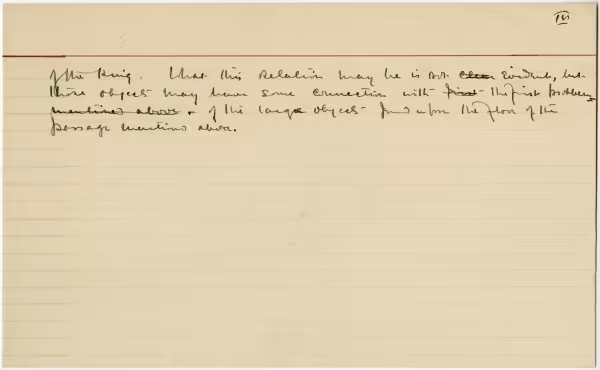 IV
of the King. What this relation may be is not clear evident, but
those objects may have some connection with first the first robbery
mentioned above. of the large objects found upon the floor of the
passage mentioned above.